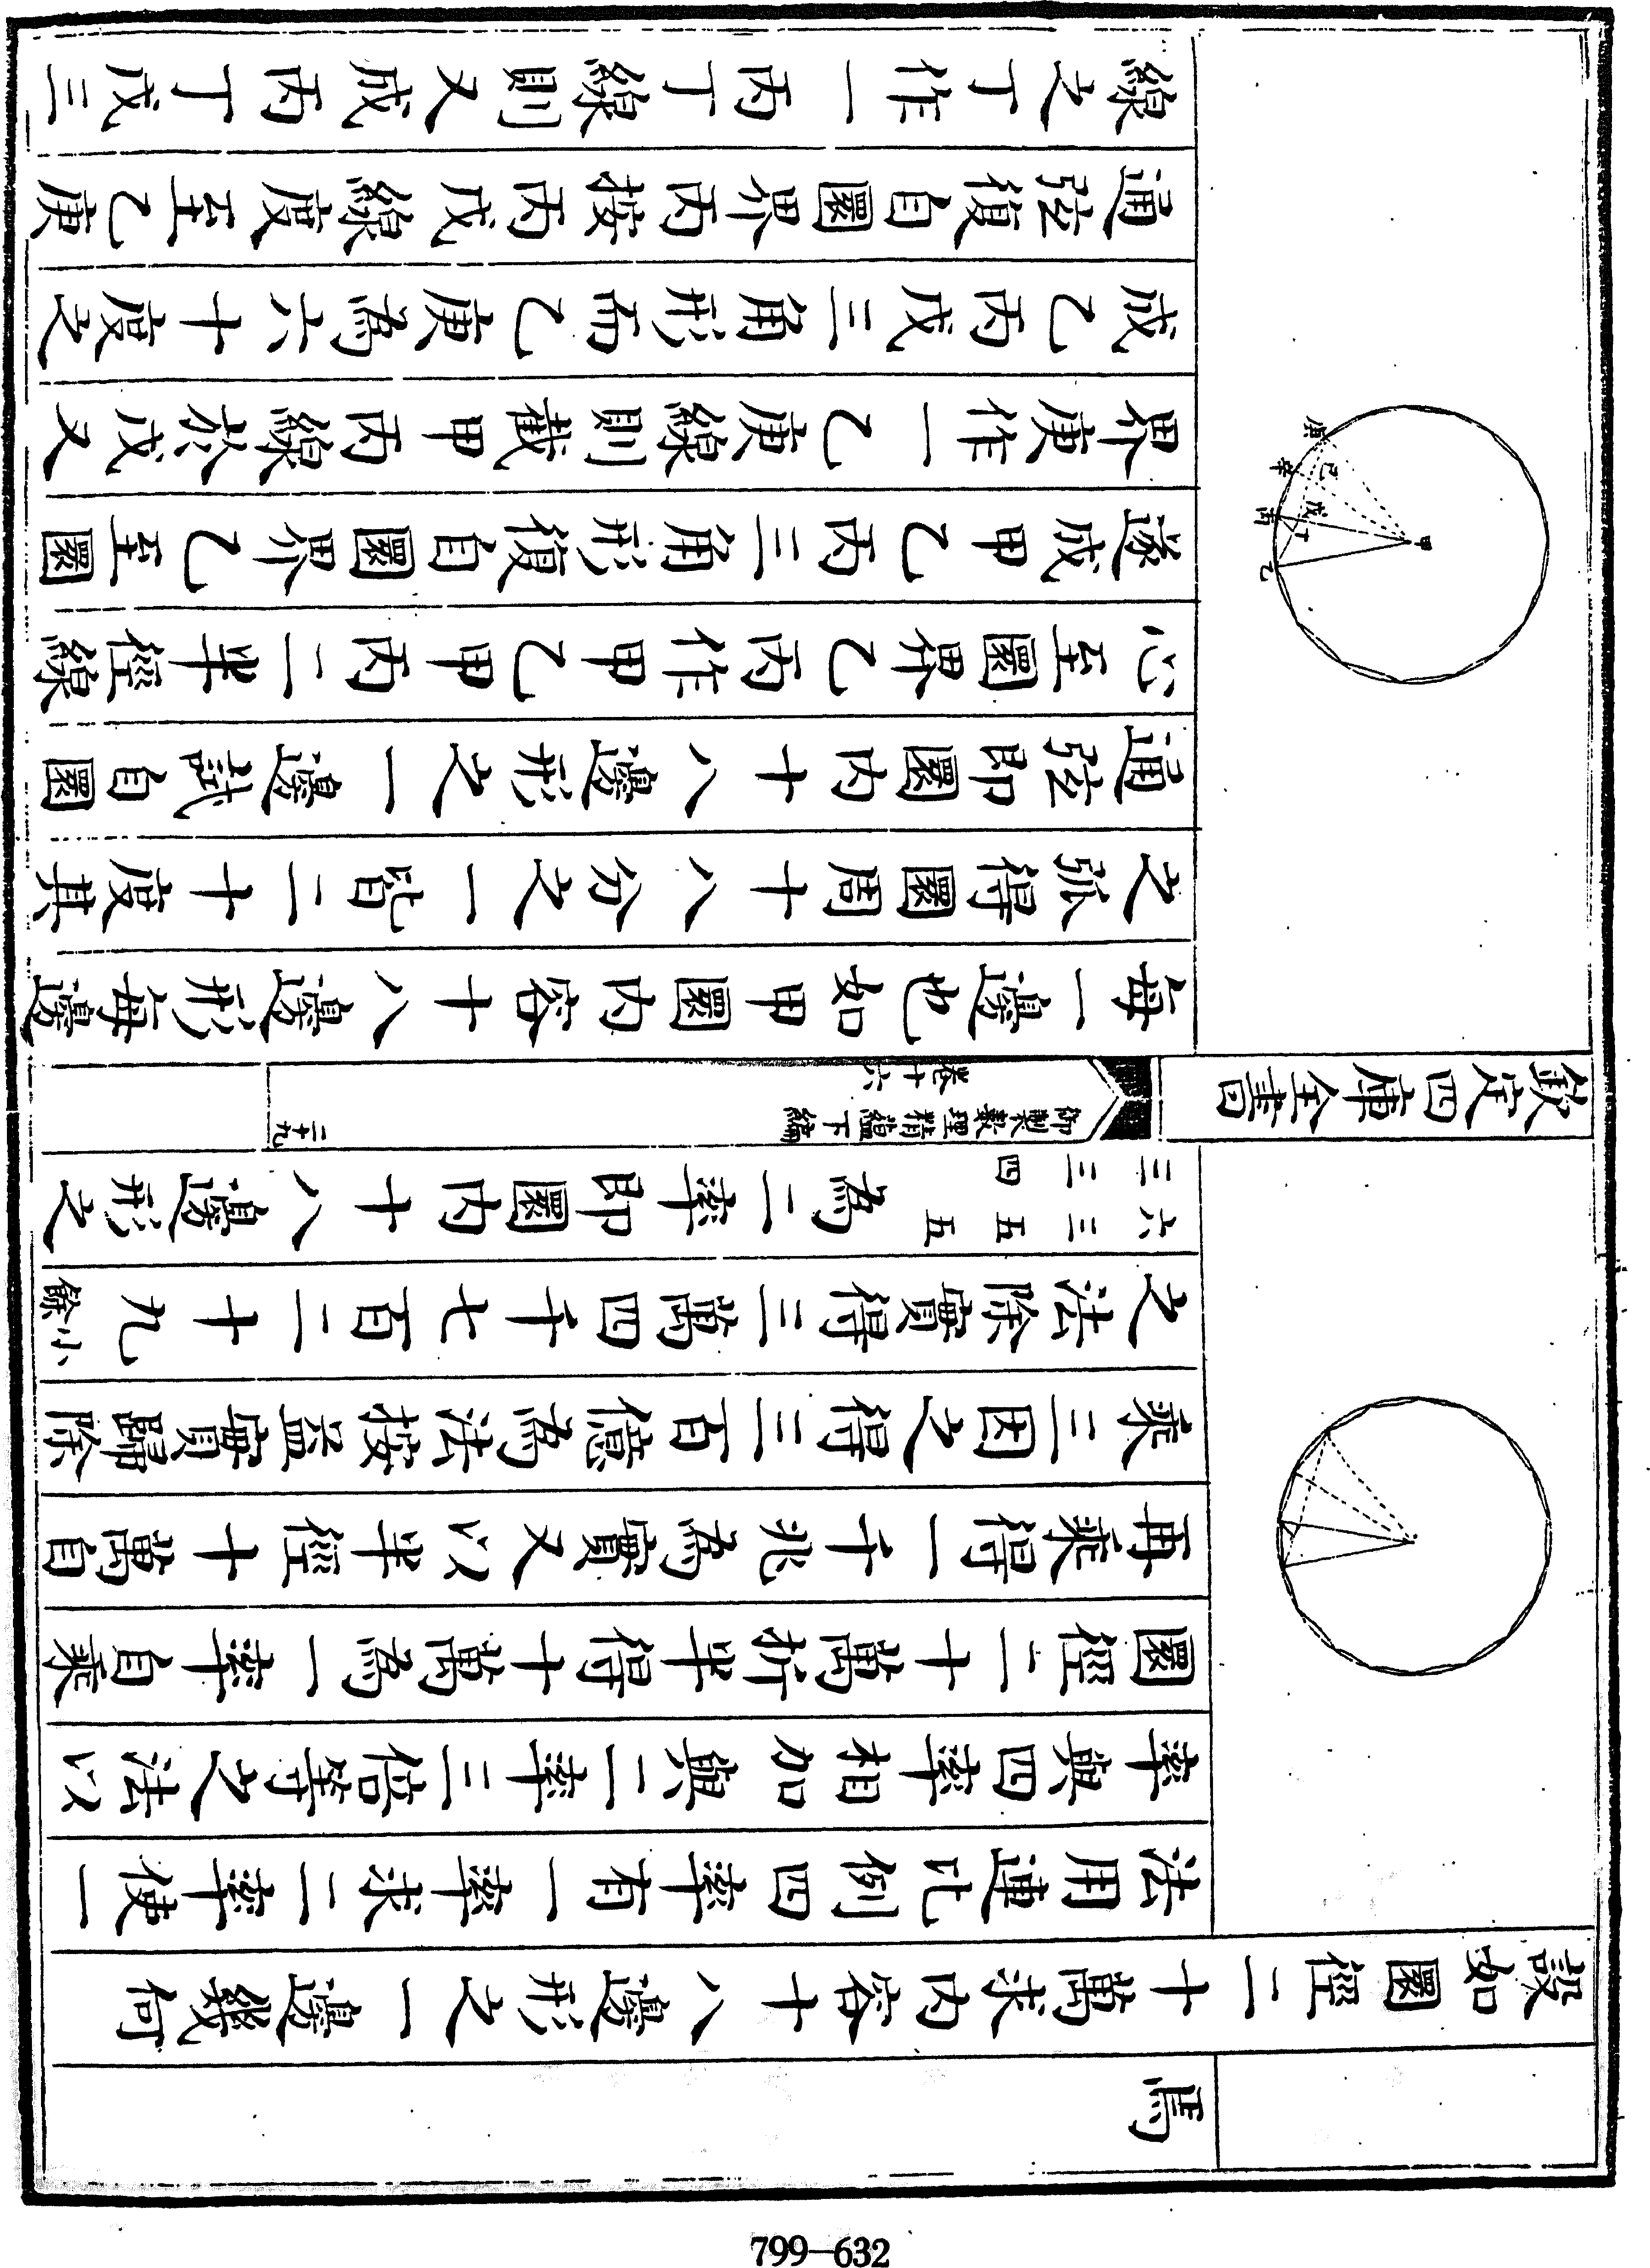 焉
設如圜徑二十萬求内容十八邊形之一邊幾何
法用連比例四率有一率求二率使一
率與四率相加與二率三倍等之法以
圜徑二十萬折半得十萬為一率自乘
再乘得一千兆為實又以半徑十萬自
乘三因之得三百億為法按益實歸除
之法除實得三萬四千七百二十九小餘
六三五五三三四為二率即圜内十八邊形之
欽定四庫全書
御製數理精蘊下編
卷十六
二十九
每一邊也如甲圜内容十八邊形每邊
之弧得圜周十八分之一皆二十度其
通弦即圜内十八邊形之一邊試自圜
心至圜界乙丙作甲乙甲丙二半徑線
遂成甲乙丙三角形復自圜界乙至圜
界庚作一乙庚線則截甲丙線於戊又
成乙丙戊三角形而乙庚為六十度之
通弦復自圜界丙按丙戊線度至乙庚
線之丁作一丙丁線則又成丙丁戊三
庚
辛
己
丙
戊
丁
乙
甲
799—632